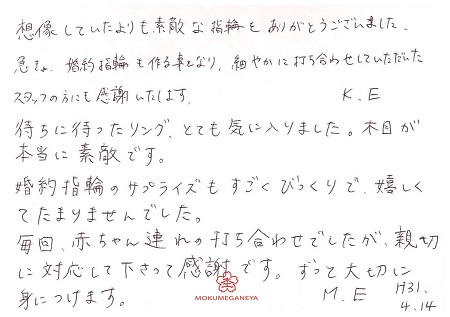 想像していたよりも素敵な指輪をありがとうございました。
急きょ、婚約指輪も作る事となり、細やかに打ち合わせしていただいた
スタッフの方にも感謝いたします。 K.E
待ちに待ったリング、とても気に入りました。木目が
本当に素敵です。
婚約指輪のサプライズもすごくびっくりで、嬉しく
てたまりませんでした。
毎回、赤ちゃん連れの打ち合わせでしたが、親切
に対応して下さって感謝です。ずっと大切に
身につけます。 M.E H31.
4.14
MOKUMEGANEYA